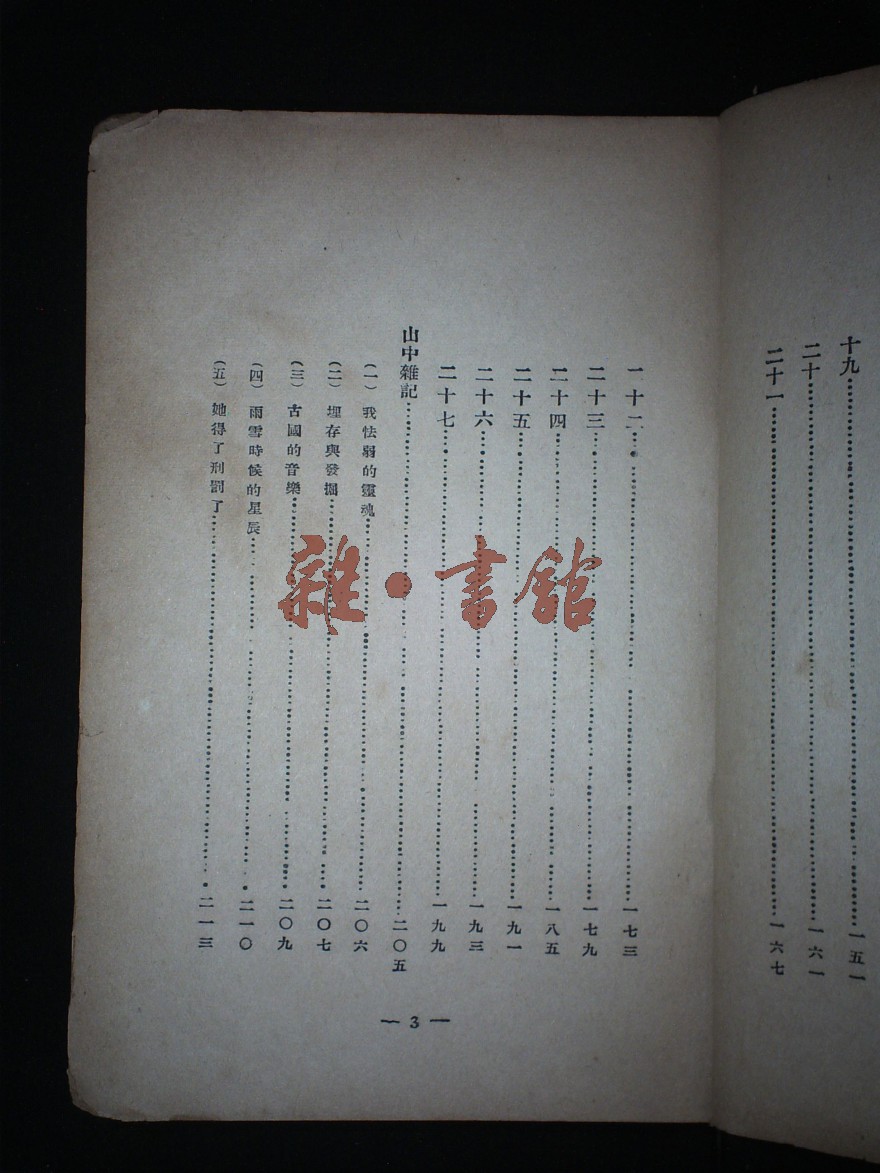 十九……一五一
二十……一六一
二十一……一六七
二十二……一七三
二十三……一七九
二十四……一八五
二十五……一九一
二十六……一九三
二十七……一九九
山中雜記……二〇五
(一)我怯弱的靈魂……二〇六
(二)埋存與發掘……二〇七
(三)古國的音樂……二〇九
(四)雨雪時候的星辰……二一〇
(五)她得了刑罰了……二一三
— 3 —
雜·書館